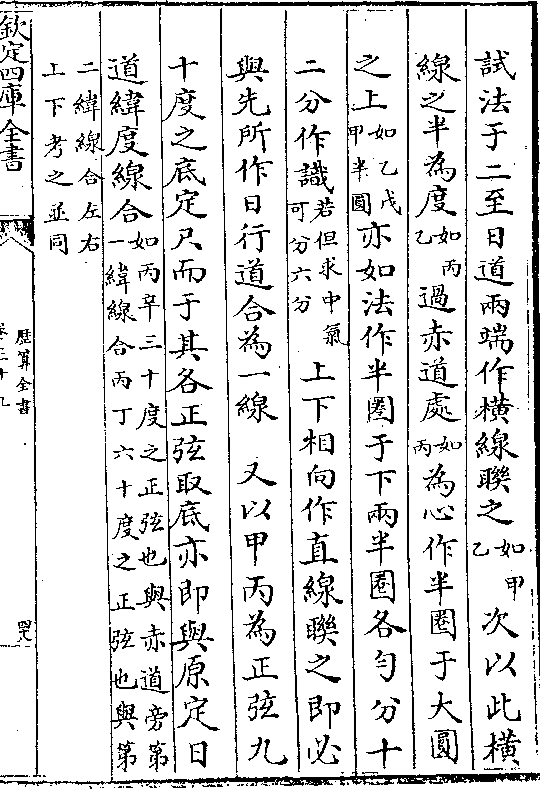 試法于二至日道兩端作橫線聯之如甲乙次以此橫
線之半為度如丙乙過赤道處如丙為心作半圈于大圓
之上如乙戊甲半圓亦如法作半圈于下兩半圈各勻分十
二分作識若但求中氣可分六分上下相向作直線聯之即必
與先所作日行道合為一線　又以甲丙為正弦九
十度之底定尺而于其各正弦取底亦即與原定日
道緯度線合如丙辛三十度之正弦也與赤道旁第一緯線合丙丁六十度之正弦也與第
二緯線合左右上下考之並同
欽定四庫全書
歷算全書
卷三十九